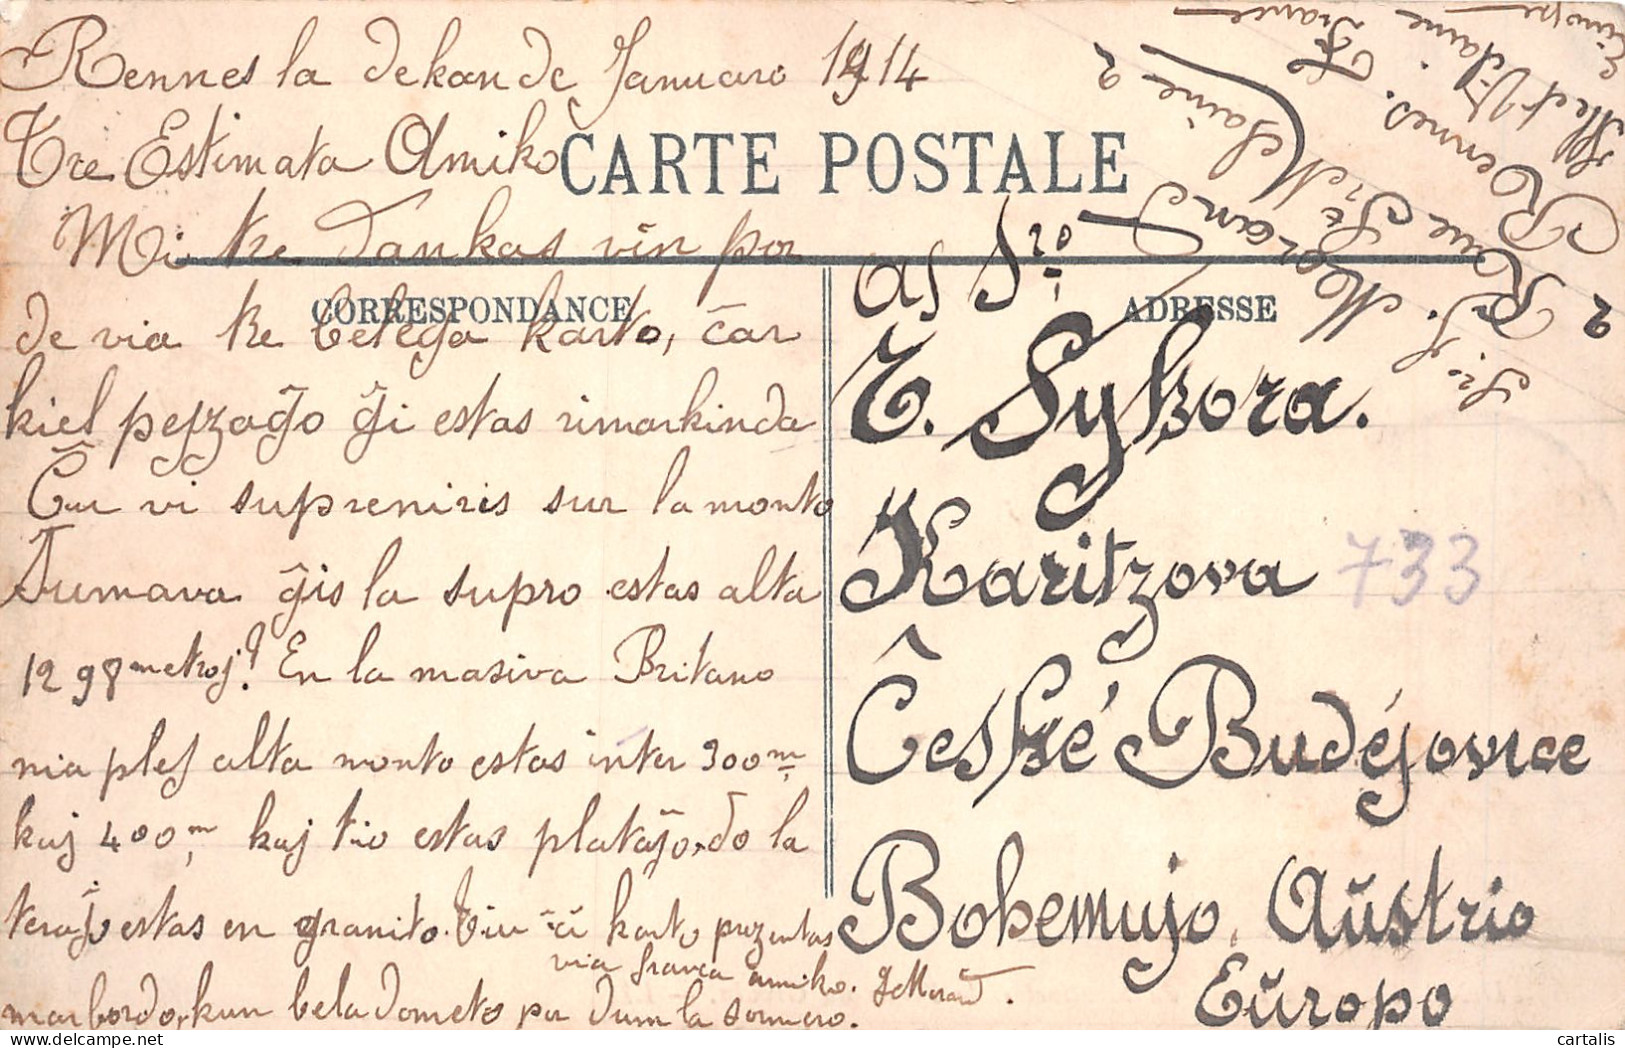 Rennes la dekan de Januaro 1914
Tre Estimata Amiko
CARTE POSTALE
Mi tre dankas vin por
CORRESPONDANCE
de via tre belega karto, ĉar
kiel pejzaĝo ĝi estas rimarkinda
Ĉu vi supreniris sur la monto
Ŝumava ĝis la supro estas alta
1298 metroj? En la masiva Britano
nia plej alta monto estas inter 300m,
kaj 400m, kaj tio estas plataĵo, do la
teraĵo estas en granito. Tiu ĉi karto prezentas
marbordo, kun bela dometo por dum la somero.
via franca amiko. J Morand.
ADRESSE
al Sro
E. Sykora.
Karitzova
Ĉeské Budéjovice
Bohemujo, Aŭstrio
Eŭropo
733
Sro J. Morand
2 Rue St Melaine 2
Rennes.
Ille et Vilaine. France
Europe
cartalis